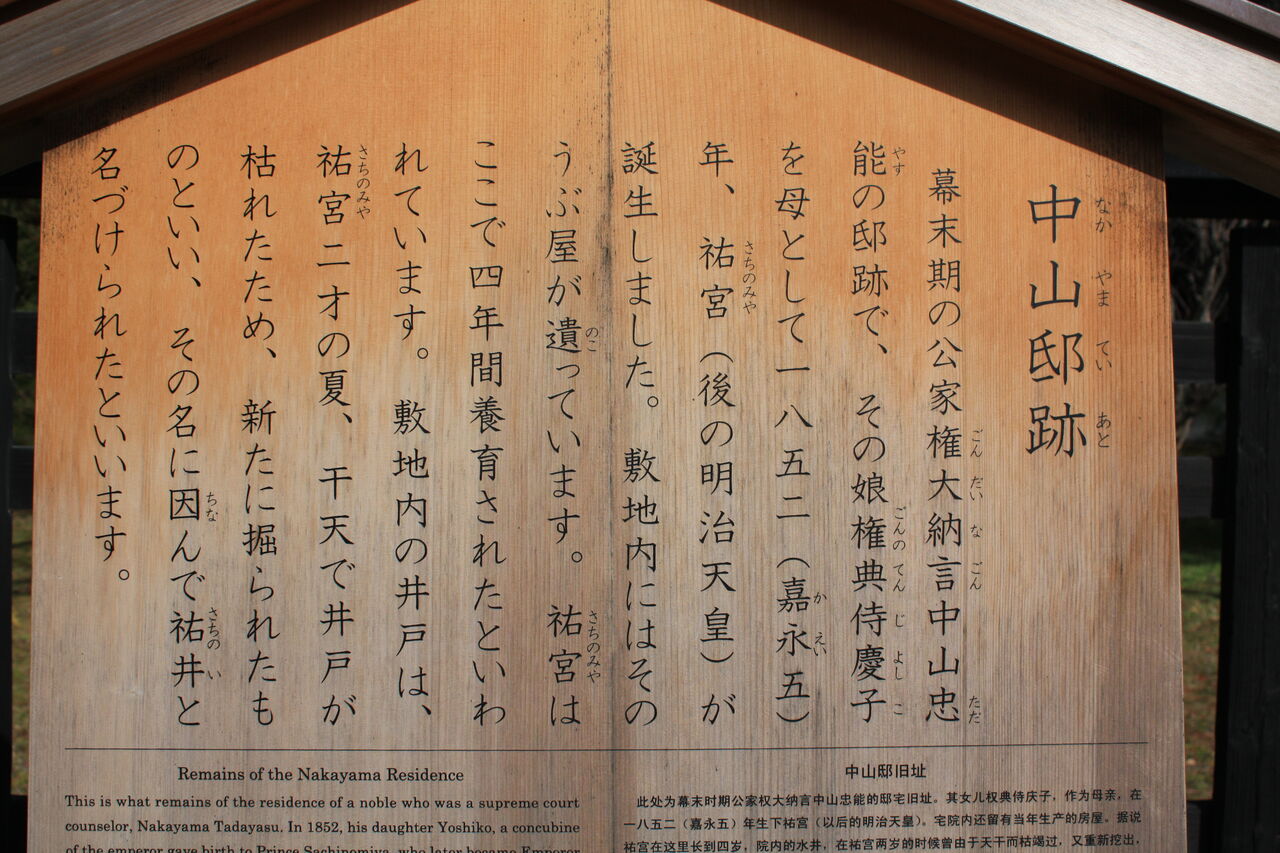 中山邸跡
なか やま てい あと
幕末期の公家権大納言中山忠
ごん だい な ごん ただ
能の邸跡で、その娘権典侍慶子
やす ごんの てん じ よし こ
を母として一八五二（嘉永五）
か えい
年、祐宮（後の明治天皇）が
さちのみや
誕生しました。敷地内にはその
うぶ屋が遺っています。祐宮は
のこ さちのみや
ここで四年間養育されたといわ
れています。敷地内の井戸は、
祐宮二才の夏、干天で井戸が
さちのみや
枯れたため、新たに掘られたも
のといい、その名に因んで祐井と
ちな さちの い
名づけられたといいます。
Remains of the Nakayama Residence
This is what remains of the residence of a noble who was a supreme court
counselor, Nakayama Tadayasu. In 1852, his daughter Yoshiko, a concubine
of the emperor gave birth to Prince Sachinomiya, who later became Emperor
中山邸旧址
此处为幕末时期公家权大纳言中山忠能的邸宅旧址。其女儿权典侍庆子，作为母亲，在
一八五二（嘉永五）年生下祐宫（以后的明治天皇）。宅院内还留有当年生产的房屋。据说
祐宫在这里长到四岁，院内的水井，在祐宫两岁的时候曾由于天干而枯竭过，又重新挖出，